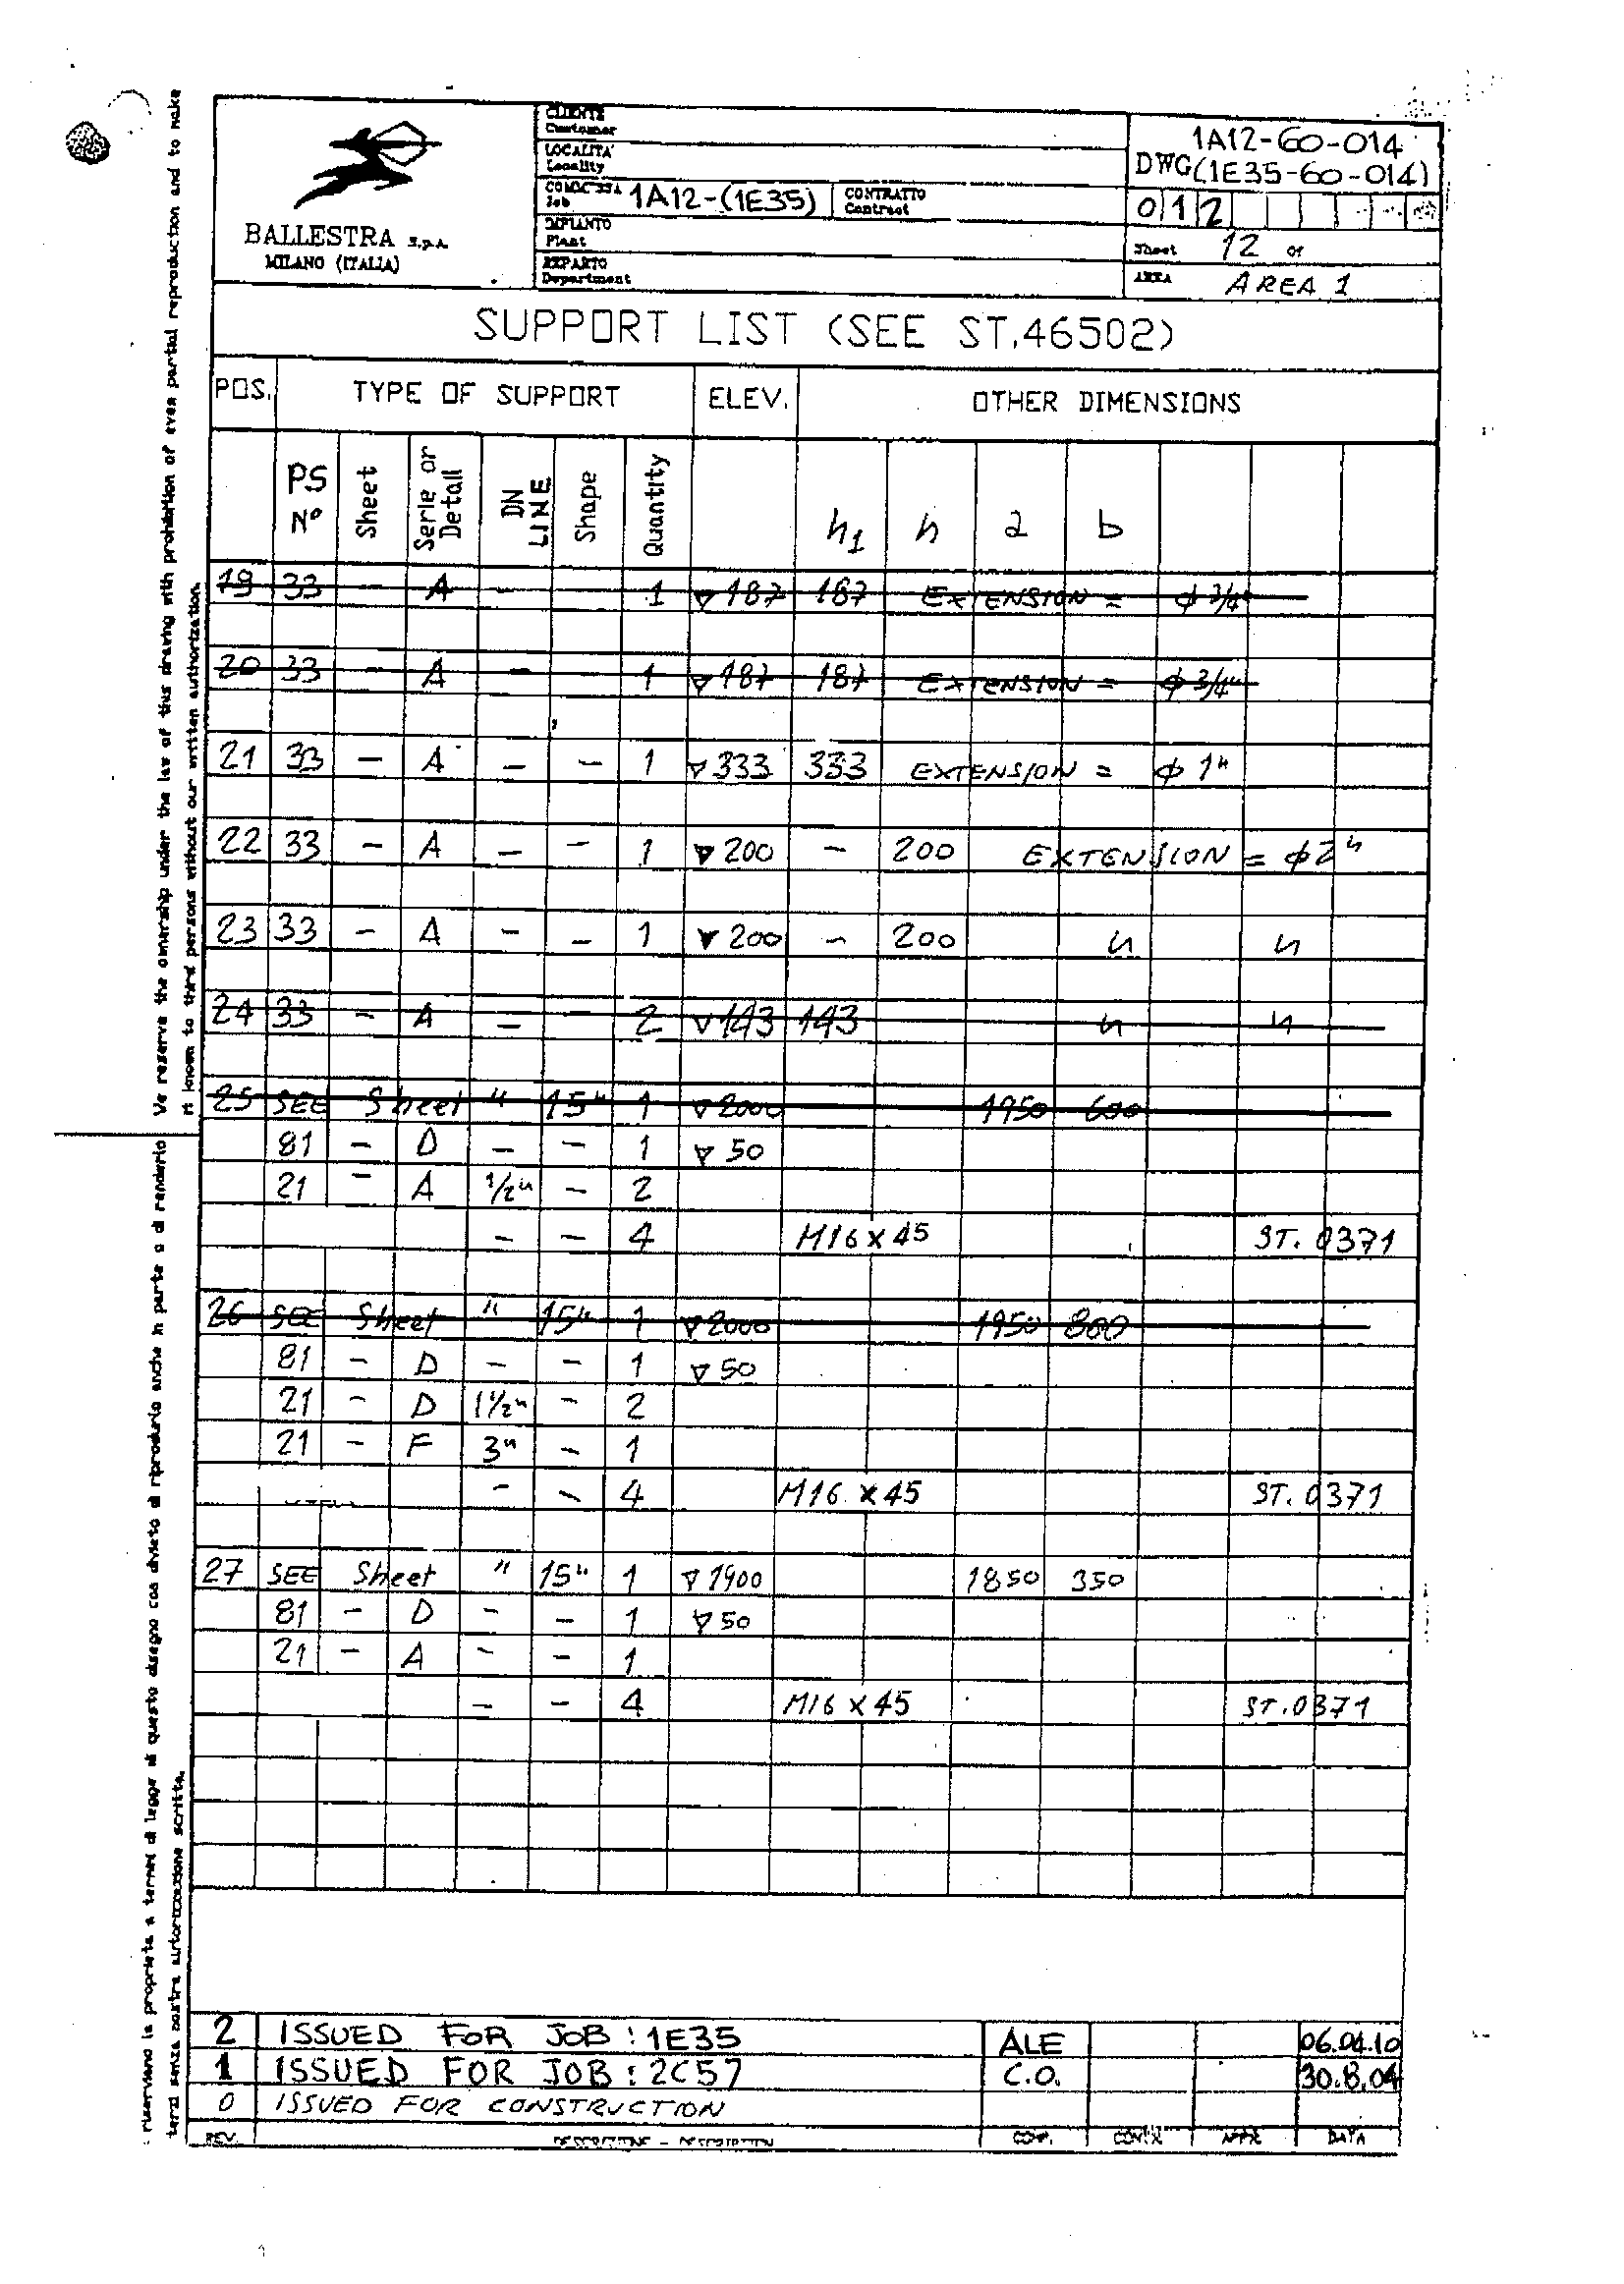 CLIENTE
Customer
LOCALITA'
Locality
COMMESSA
Job
1A12-(1E35)
CONTRATTO
Contract
IMPIANTO
Plant
REPARTO
Department
BALLESTRA S.p.A.
MILANO (ITALIA)
1A12-60-014
DWG(1E35-60-014)
0 1 2
Sheet 12 of
AREA AREA 1
SUPPORT LIST (SEE ST.46502)
POS. TYPE OF SUPPORT ELEV. OTHER DIMENSIONS
PS N° Sheet Serie or Detail DN LINE Shape Quantity h1 h a b
19 33 - A - 1 ▽187 187 EXTENSION = ϕ 3/4"
20 33 - A - 1 ▽187 187 EXTENSION = ϕ 3/4"
21 33 - A - - 1 ▽333 333 EXTENSION = ϕ 1"
22 33 - A - - 1 ▽200 - 200 EXTENSION = ϕ 2"
23 33 - A - - 1 ▽200 - 200 " "
24 33 - A - - 2 ▽143 143 " "
25 SEE Sheet " 15" 1 ▽2000 1950 600
81 - D - - 1 ▽50
21 - A 1/2" - 2
- - 4 M16x45 ST. 0371
26 SEE Sheet " 15" 1 ▽2000 1950 800
81 - D - - 1 ▽50
21 - D 1 1/2" - 2
21 - F 3" - 1
- - 4 M16x45 ST. 0371
27 SEE Sheet " 15" 1 ▽1900 1850 350
81 - D - - 1 ▽50
21 - A - - 1
- - 4 M16x45 ST.0371
2 ISSUED FOR JOB: 1E35 ALE 06.04.10
1 ISSUED FOR JOB: 2C57 C.O. 30.8.04
0 ISSUED FOR CONSTRUCTION
REV. DESCRIZIONE - DESCRIPTION COMP. CONTR. APPR. DATA
We reserve the ownership under the law of this drawing with prohibition of even partial reproduction and to make
it known to third persons without our written authorization.
riserviamo la proprieta a termini di legge di questo disegno con divieto di riprodurlo anche in parte o di renderlo
terzi senza nostra autorizzazione scritta.